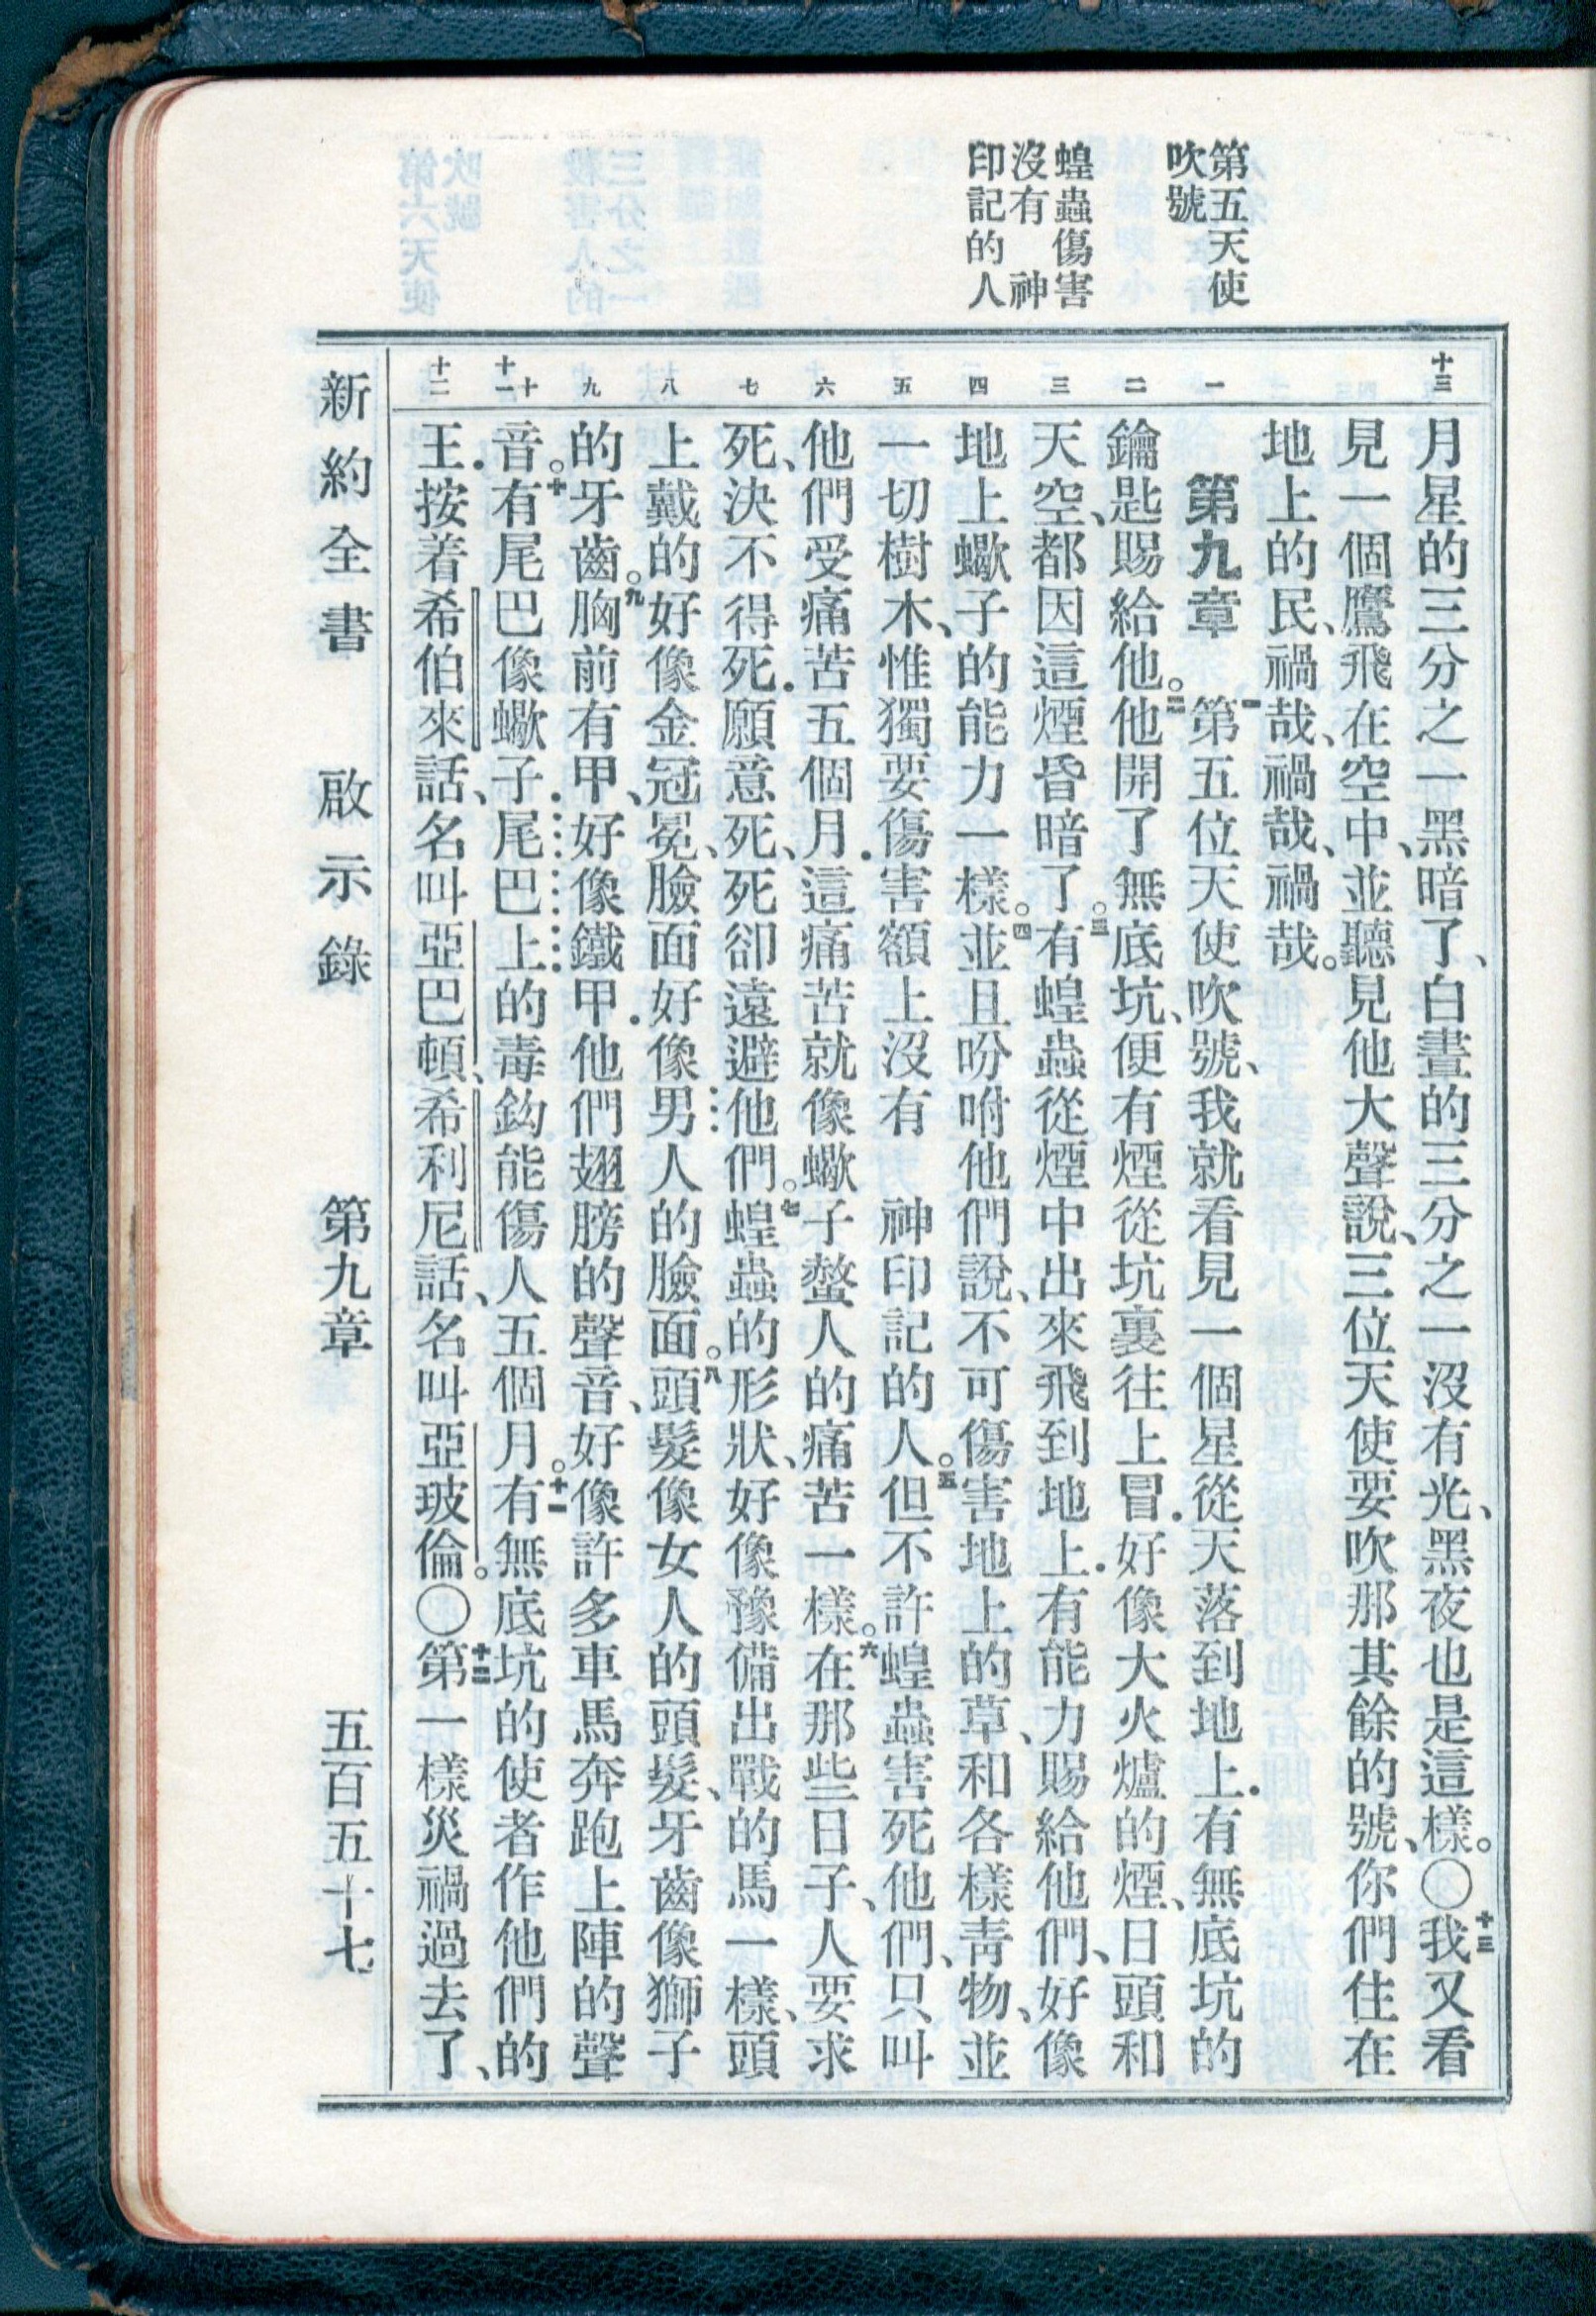 第五天使
吹號
蝗蟲傷害
沒有　神
印記的人
十三
一
二
三
四
五
六
七
八
九
十
十一
十二
月星的三分之一黑暗了、白晝的三分之一沒有光、黑夜也是這樣。〇十三我又看
見一個鷹飛在空中、並聽見他大聲說、三位天使要吹那其餘的號、你們住在
地上的民、禍哉、禍哉、禍哉。
第九章　一第五位天使吹號、我就看見一個星從天落到地上．有無底坑的
鑰匙賜給他。二他開了無底坑、便有煙從坑裏往上冒．好像大火爐的煙、日頭和
天空、都因這煙昏暗了。三有蝗蟲從煙中出來飛到地上．有能力賜給他們、好像
地上蠍子的能力一樣。四並且吩咐他們說、不可傷害地上的草、和各樣青物、並
一切樹木、惟獨要傷害額上沒有　神印記的人。五但不許蝗蟲害死他們、只叫
他們受痛苦五個月．這痛苦就像蠍子螫人的痛苦一樣。六在那些日子、人要求
死、決不得死．願意死、死卻遠避他們。七蝗蟲的形狀、好像豫備出戰的馬一樣、頭
上戴的好像金冠冕、臉面好像男人的臉面。八頭髮像女人的頭髮、牙齒像獅子
的牙齒。九胸前有甲、好像鐵甲．他們翅膀的聲音、好像許多車馬奔跑上陣的聲
音。十有尾巴像蠍子．尾巴上的毒鈎能傷人五個月。十一有無底坑的使者作他們的
王．按着希伯來話、名叫亞巴頓、希利尼話、名叫亞玻倫。〇十二第一樣災禍過去了、
新約全書　啟示錄　第九章　五百五十七